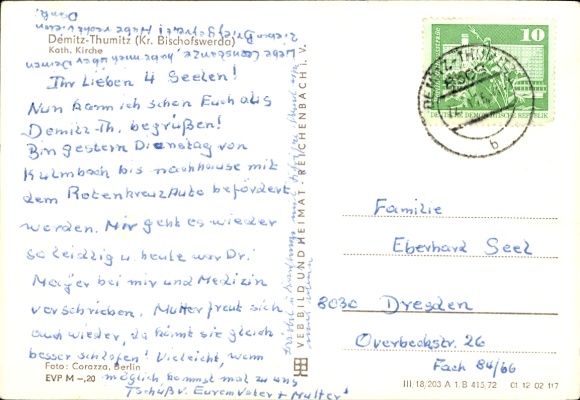 Demitz-Thumitz (Kr. Bischofswerda)
Kath. Kirche
Liebe Constanze, habe mich über Deinen
lieben Brief gefreut! Habe recht vielen
Dank.
Ihr Lieben 4 Seelen!
Nun kann ich schon Euch aus
Demitz-Th. begrüßen!
Bin gestern Dienstag von
Kulmbach bis nachhause mit
dem Rotenkreuz Auto befördert
werden. Mir geht es wieder
so leidlig u. heute war Dr.
Mayer bei mir und Medizin
verschrieben. Mutter freut sich
auch wieder, da könt sie gleich
besser schlafen! Vieleicht, wenn
möglich, kommst mal zu uns
Tschüß v. Eurem Vater + Mutter
Foto: Corazza, Berlin
EVP M –,20
VEB BILD UND HEIMAT · REICHENBACH i. V.
10
DEUTSCHE DEMOKRATISCHE REPUBLIK
DEMITZ-THUMITZ
b
Familie
Eberhard Seel
8030 Dresden
Overbeckstr. 26
Fach 84/66
III/18/203 A 1/B 415/72 01 12 02 117